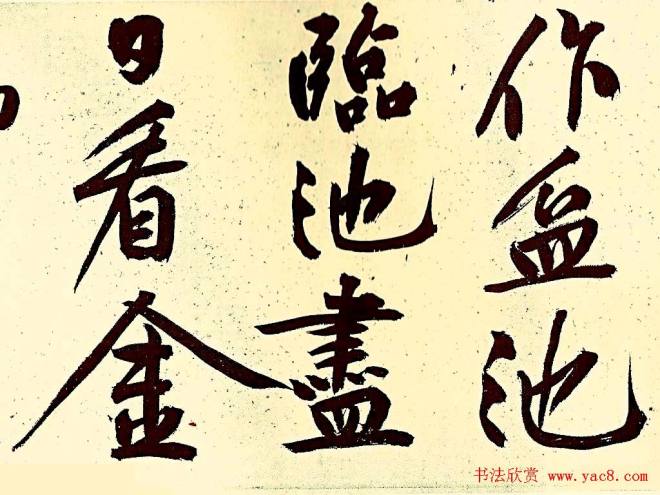 作盆池
臨池盡
日看金
书法欣赏 www.yac8.com